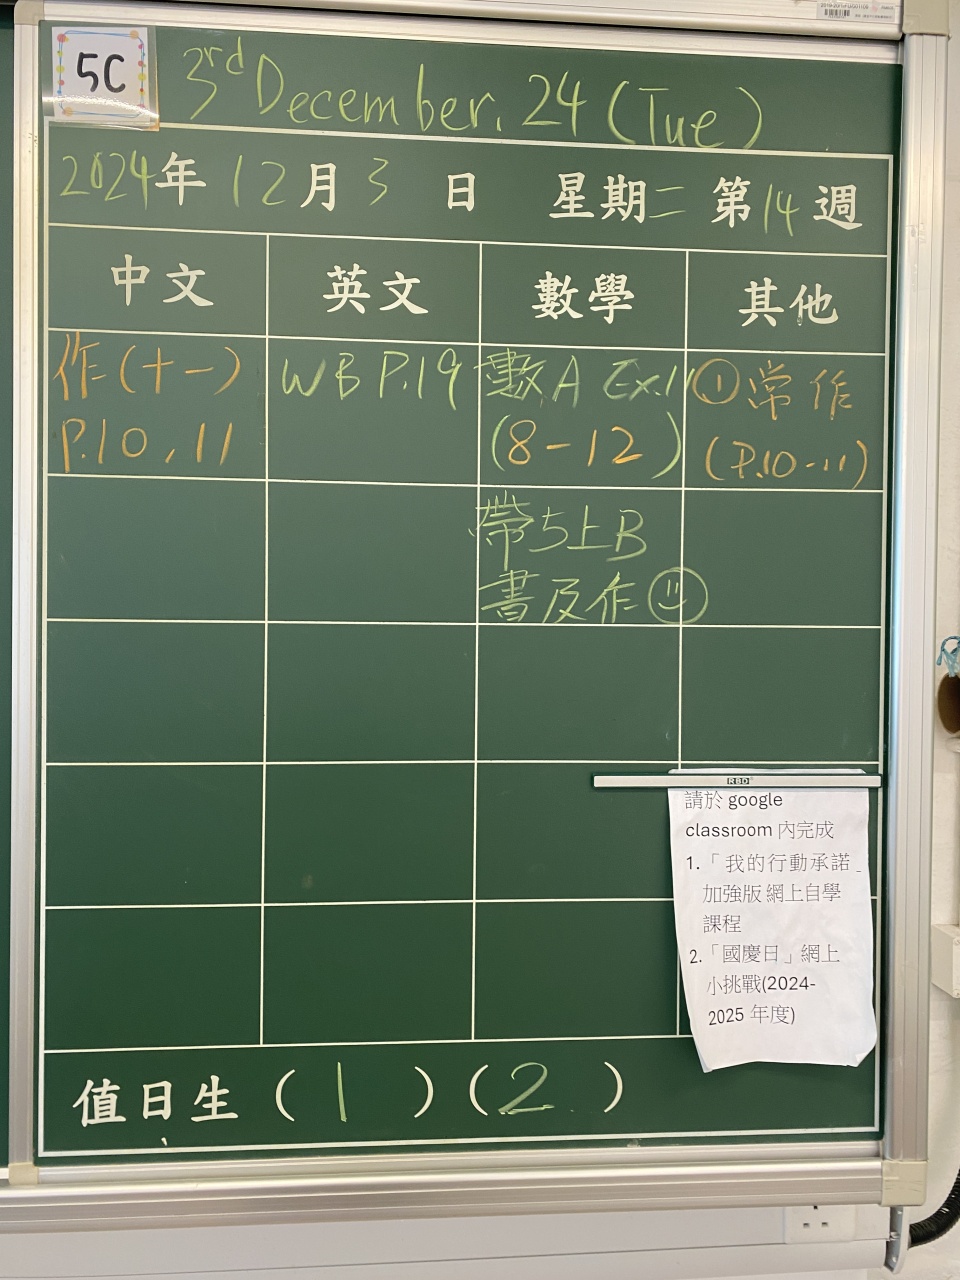 5C
3rd December. 24 (Tue)
2024年 12月 3 日 星期二 第14週
中文 英文 數學 其他
作(十一)
P.10, 11
WB P.19
數A Ex.11
(8-12)
①常作
(P.10-11)
帶5上B
書及作
RBD
請於 google
classroom 內完成
1.「我的行動承諾」
加強版 網上自學
課程
2.「國慶日」網上
小挑戰(2024-
2025 年度)
值日生 ( 1 ) ( 2 )